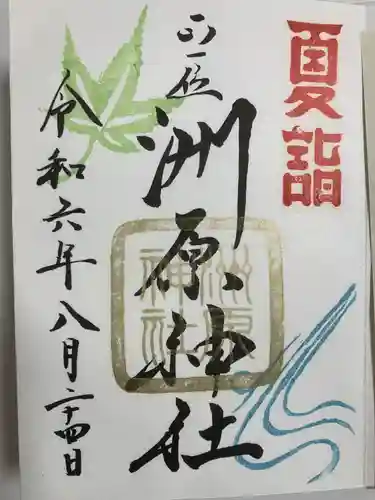 夏詣
正一位
洲原神社
洲原神社
令和六年八月二十四日